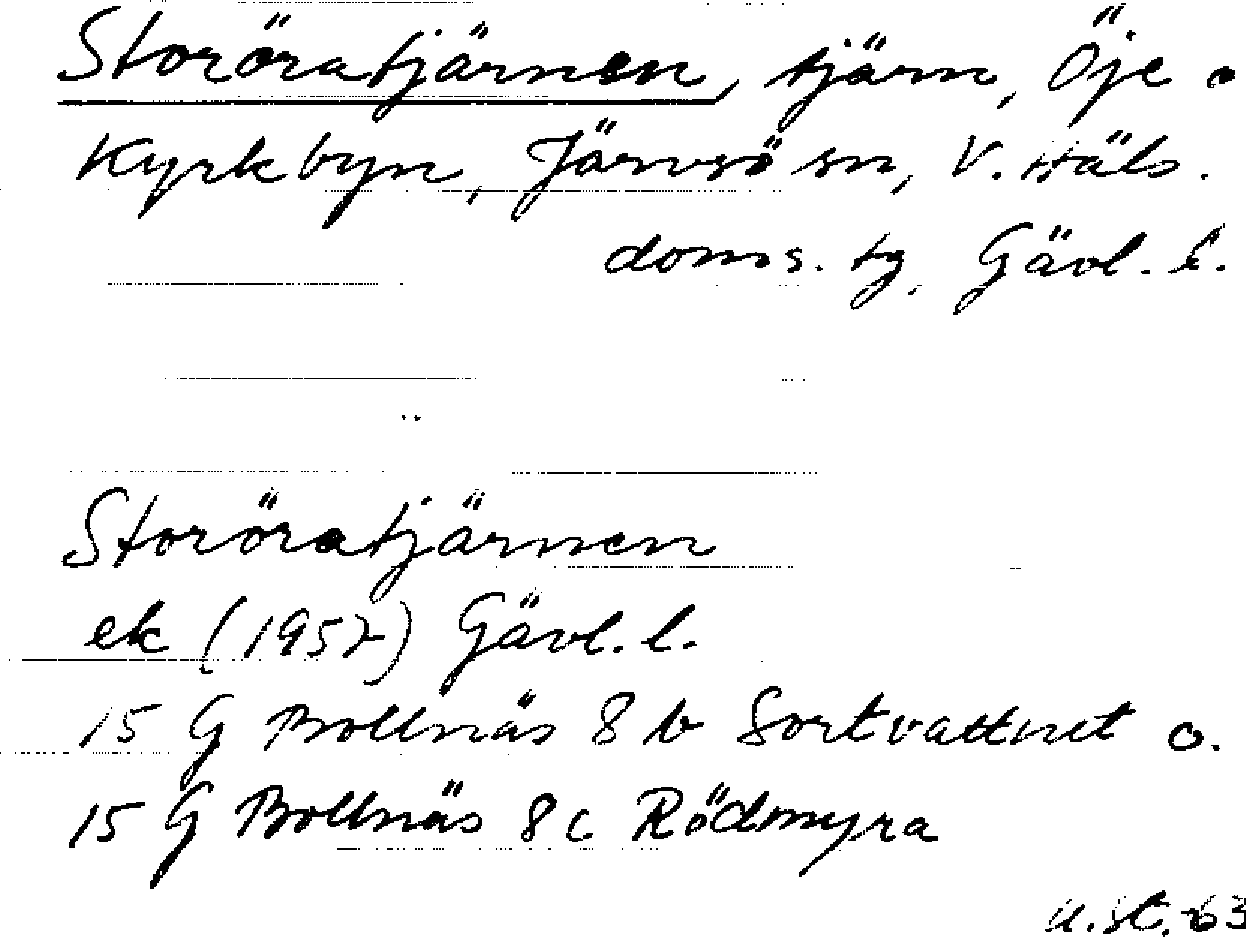 Storöratjärnen, tjärn, Öje o
Kyrkbyn, Järvsö sn, V. Häls.
doms. tg, Gävl. l.
Storöratjärnen
ek (1957) Gävl. l.
15 G Bollnäs 8 b Sortvattnet o.
15 G Bollnäs 8 c Rödmyra
U. St. 63